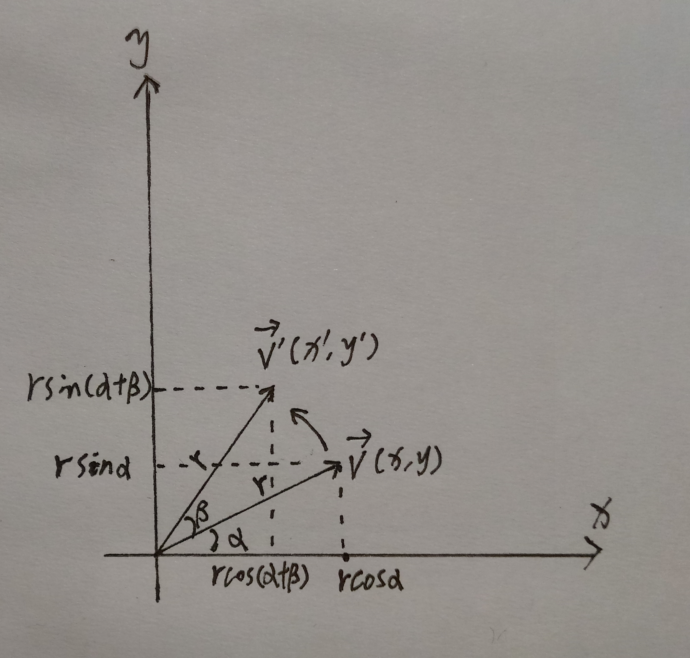 y
V⃗'(x',y')
rsin(α+β)
rsinα
r
r
V⃗(x,y)
β
α
x
rcos(α+β)
rcosα